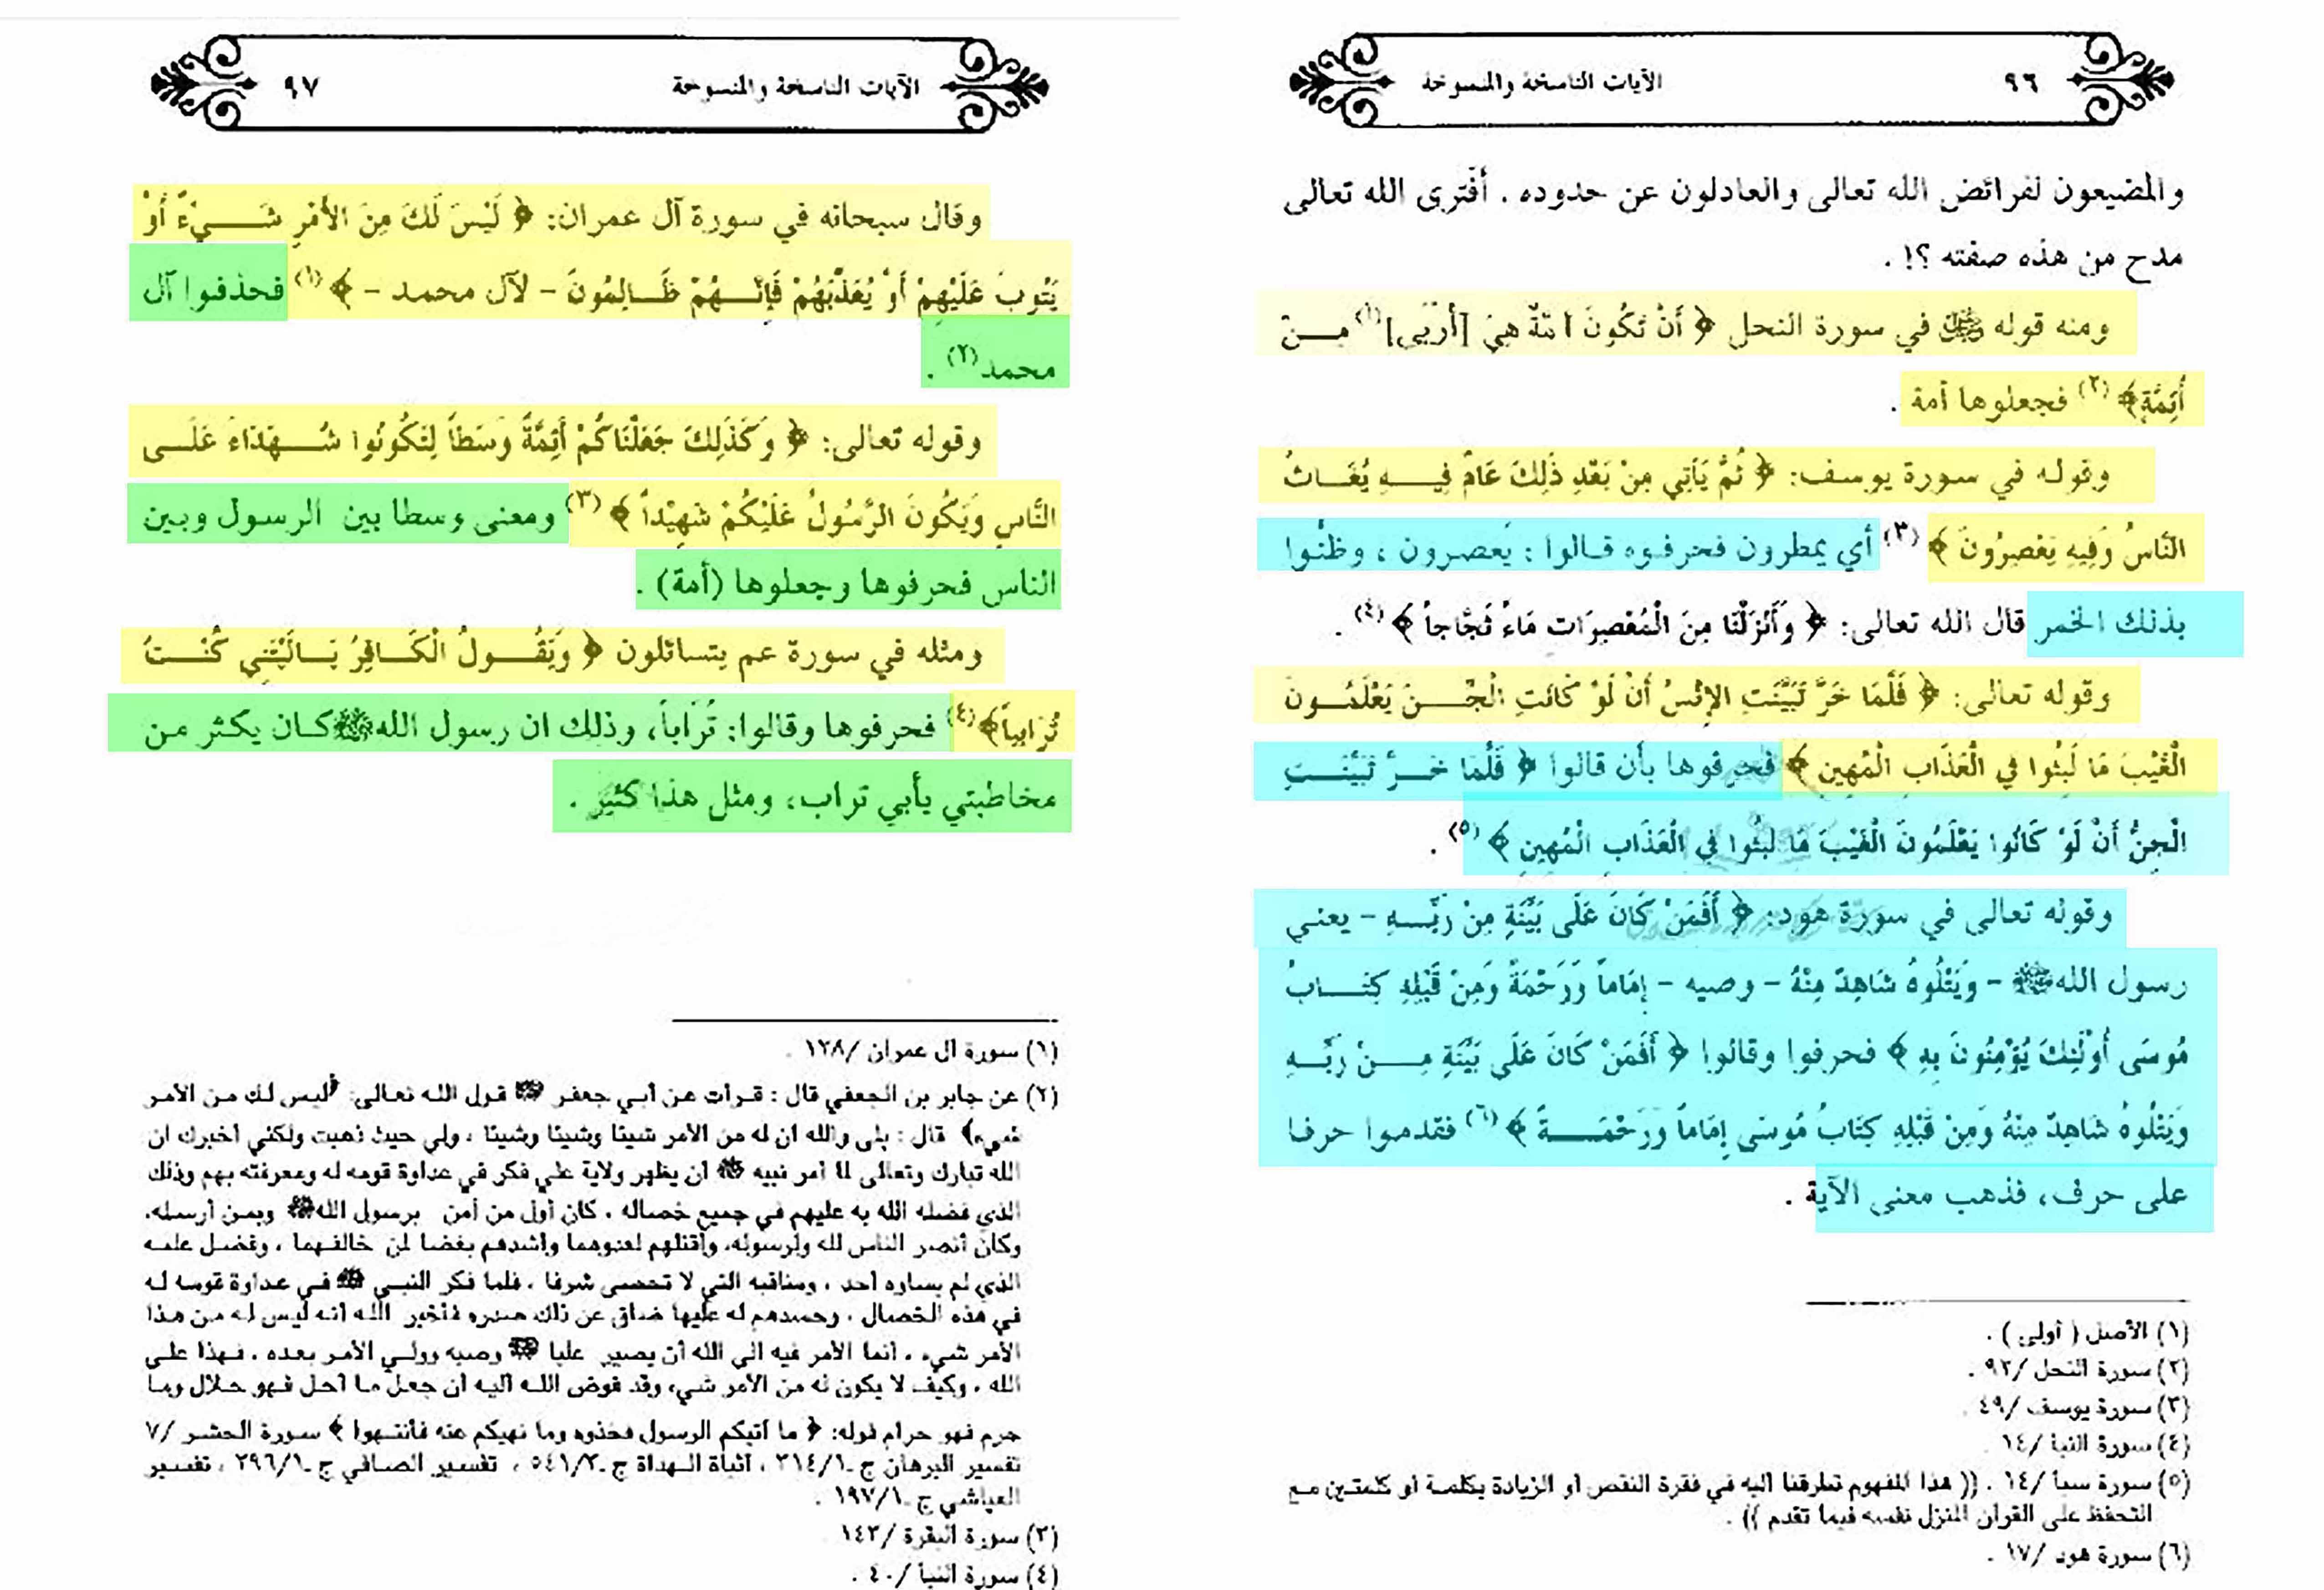 ٩٦ الآيات الناسخة والمنسوخة
والمضيعون لفرائض الله تعالى والعادلون عن حدوده . أفترى الله تعالى
مدح من هذه صفته ؟! .
ومنه قوله ﷻ في سورة النحل ﴿ أَنْ تَكُونَ أمَّةٌ هِيَ [أَرْبَى](١) مِـــنْ
أَئِمَّةٍ﴾ (٢) فجعلوها أمة .
وقوله في سورة يوسف: ﴿ ثُمَّ يَأتِي مِنْ بَعْدِ ذَلِكَ عَامٌ فِيـــهِ يُغَـــاثُ
النَّاسُ وَفِيهِ يَعْصِرُونَ ﴾ (٣) أي يمطرون فحرفوه قالوا : يَعصرون ، وظنُّوا
بذلك الخمر قال الله تعالى: ﴿ وَأَنْزَلْنَا مِنَ الْمُعْصِرَاتِ مَاءً ثَجَّاجاً ﴾ (٤) .
وقوله تعالى: ﴿ فَلَمَّا خَرَّ تَبَيَّنَتِ الإِنْسُ أَنْ لَوْ كَانَتِ الْجِـــنَّ يَعْلَمُـــونَ
الْغَيْبَ مَا لَبِثُوا فِي الْعَذَابِ الْمُهِينِ ﴾ فحرفوها بأن قالوا ﴿ فَلَمَّا خَـــرَّ تَبَيَّنَـــتِ
الْجِنُّ أَنْ لَوْ كَانُوا يَعْلَمُونَ الْغَيْبَ مَا لَبِثُوا فِي الْعَذَابِ الْمُهِينِ ﴾ (٥) .
وقوله تعالى في سورة هود: ﴿ أَفَمَنْ كَانَ عَلَى بَيِّنَةٍ مِنْ رَبِّـــهِ – يعني
رسول الله ﷺ – وَيَتْلُوهُ شَاهِدٌ مِنْهُ – وصيه – إِمَاماً وَرَحْمَةً وَمِنْ قَبْلِهِ كِتَـــابُ
مُوسَى أُولَئِكَ يُؤْمِنُونَ بِهِ ﴾ فحرفوا وقالوا ﴿ أَفَمَنْ كَانَ عَلَى بَيِّنَةٍ مِـــنْ رَبِّـــهِ
وَيَتْلُوهُ شَاهِدٌ مِنْهُ وَمِنْ قَبْلِهِ كِتَابُ مُوسَى إِمَاماً وَرَحْمَـــةً ﴾ (٦) فقدموا حرفا
على حرف، فذهب معنى الآية .
(١) الأصل ( أولى ) .
(٢) سورة النحل /٩٢ .
(٣) سورة يوسف /٤٩ .
(٤) سورة النبأ /١٤ .
(٥) سورة سبأ /١٤ . (( هذا المفهوم تطرقنا اليه في فقرة النقص أو الزيادة بكلمة أو كلمتين مـع
التحفظ على القرآن المنزل نفسه فيما تقدم )) .
(٦) سورة هود /١٧ .
الآيات الناسخة والمنسوخة ٩٧
وقال سبحانه في سورة آل عمران: ﴿ لَيْسَ لَكَ مِنَ الأَمْرِ شَـــيْءٌ أَوْ
يَتُوبَ عَلَيْهِمْ أَوْ يُعَذِّبَهُمْ فَإِنَّـــهُمْ ظَـــالِمُونَ – لآل محمد – ﴾ (١) فحذفوا آل
محمد(٢) .
وقوله تعالى: ﴿ وَكَذَلِكَ جَعَلْنَاكُمْ أَئِمَّةً وَسَطاً لِتَكُونُوا شُـــهَدَاءَ عَلَـــى
النَّاسِ وَيَكُونَ الرَّسُولُ عَلَيْكُمْ شَهِيْداً ﴾ (٣) ومعنى وسطا بين الرسول وبين
الناس فحرفوها وجعلوها (أمة) .
ومثله في سورة عم يتسائلون ﴿ وَيَقُـــولُ الْكَـــافِرُ يَـــالَيْتَنِي كُنْـــتُ
تُرَابِياً﴾(٤) فحرفوها وقالوا: تُرَاباً، وذلك ان رسول الله ﷺ كـان يكثر مـن
مخاطبتي بأبي تراب، ومثل هذا كثير .
(١) سورة آل عمران /١٢٨ .
(٢) عن جابر بن الجعفي قال : قرأت عن أبي جعفر قول الله تعالى: ﴿ليس لك من الأمر
شيء﴾ قال : بلى والله ان له من الأمر شيئا وشيئا وشيئا ، ولي حيث ذهبت ولكني أخبرك ان
الله تبارك وتعالى لما أمر نبيه ﷺ أن يظهر ولاية علي فكر في عداوة قومه له ومعرفته بهم وذلك
الذي فضله الله به عليهم في جميع خصاله ، كان أول من آمن برسول الله ﷺ وبمن أرسله،
وكان أنصر الناس لله ولرسوله، وأقتلهم لعدوهما وأشدهم بغضا لمن خالفهما ، وفضل علمـه
الذي لم يساوه أحد ، ومناقبه التي لا تحصى شرفا ، فلما فكر النبـي ﷺ فـي عداوة قومـه لـه
في هذه الخصال ، وحسدهم له عليها ضاق عن ذلك صدره فأخبر الله أنه ليس لـه من هـذا
الأمر شيء ، انما الأمر فيه الى الله أن يصير عليا وصيه وولـي الأمـر بعده ، فـهذا عنـى
الله ، وكيف لا يكون له من الأمر شيء وقد فوض اللـه اليه أن جعل ما أحل فـهو حـلال ومـا
حرم فهو حرام قوله: ﴿ ما آتيكم الرسول فخذوه وما نهيكم عنه فأنتـهوا ﴾ سـورة الحشـر /٧
تفسير البرهان ج ٣١٤/١ ، أثباة الـهداة ج ٥٤١/٢ ، تفسير الصافي ج ٢٩٦/١ ، تفسـير
العياشي ج ١٩٧/١ .
(٣) سورة البقرة /١٤٣
(٤) سورة النبأ /٤٠ .